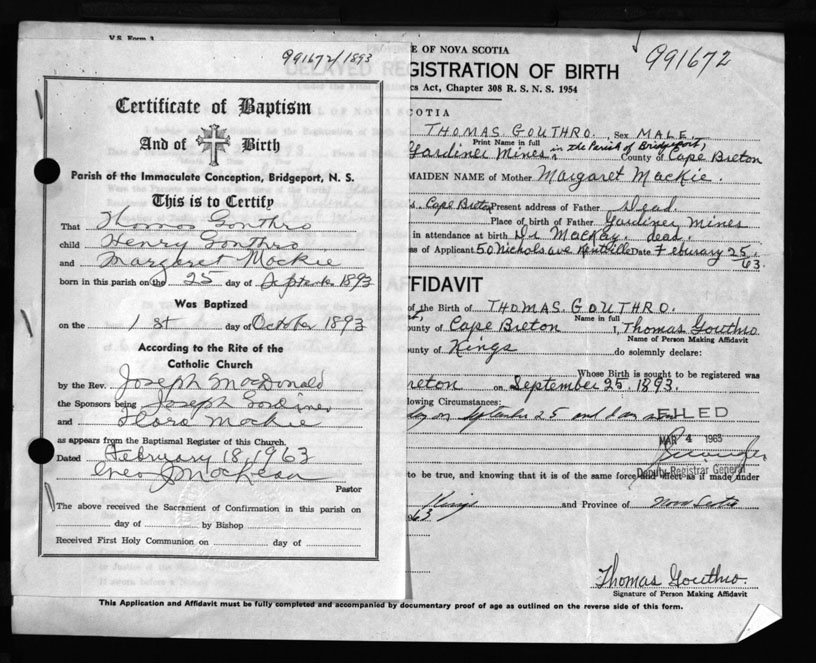 V.S. Form 3
991672/1893
Certificate of Baptism
And of Birth
Parish of the Immaculate Conception, Bridgeport, N. S.
This is to Certify
That Thomas Gouthro
child Henry Gouthro
and Margaret Mackie
born in this parish on the 25 day of September 1893
Was Baptized
on the 1st day of October 1893
According to the Rite of the
Catholic Church
by the Rev. Joseph MacDonald
the Sponsors being Joseph Gardiner
and Flora Mackie
as appears from the Baptismal Register of this Church.
Dated February 18, 1963
Pastor
The above received the Sacrament of Confirmation in this parish on
day of by Bishop
Received First Holy Communion on day of
E OF NOVA SCOTIA
991672
GISTRATION OF BIRTH
cs Act, Chapter 308 R. S. N. S. 1954
COTIA
THOMAS. GOUTHRO. Sex MALE.
Print Name in full
Gardiner Mines in the Parish of Bridgeport, County of Cape Breton
MAIDEN NAME of Mother Margaret Mackie.
s. Cape Breton Present address of Father Dead.
Place of birth of Father Gardiner Mines
in attendance at birth Dr MacKay. dead.
ss of Applicant 50 Nichols ave Kentville Date February 25. 63.
FFIDAVIT
of the Birth of THOMAS. GOUTHRO.
Name in full
ounty of Cape Breton I, Thomas Gouthro
Name of Person Making Affidavit
ounty of Kings do solemnly declare:
Whose Birth is sought to be registered was
reton on September 25. 1893.
lowing Circumstances:
on September 25 and
FILED
MAR 4 1963
Deputy Registrar General
to be true, and knowing that it is of the same force and effect as if made under
Kings and Province of Nova Scotia
63
Thomas Gouthro.
Signature of Person Making Affidavit
This Application and Affidavit must be fully completed and accompanied by documentary proof of age as outlined on the reverse side of this form.